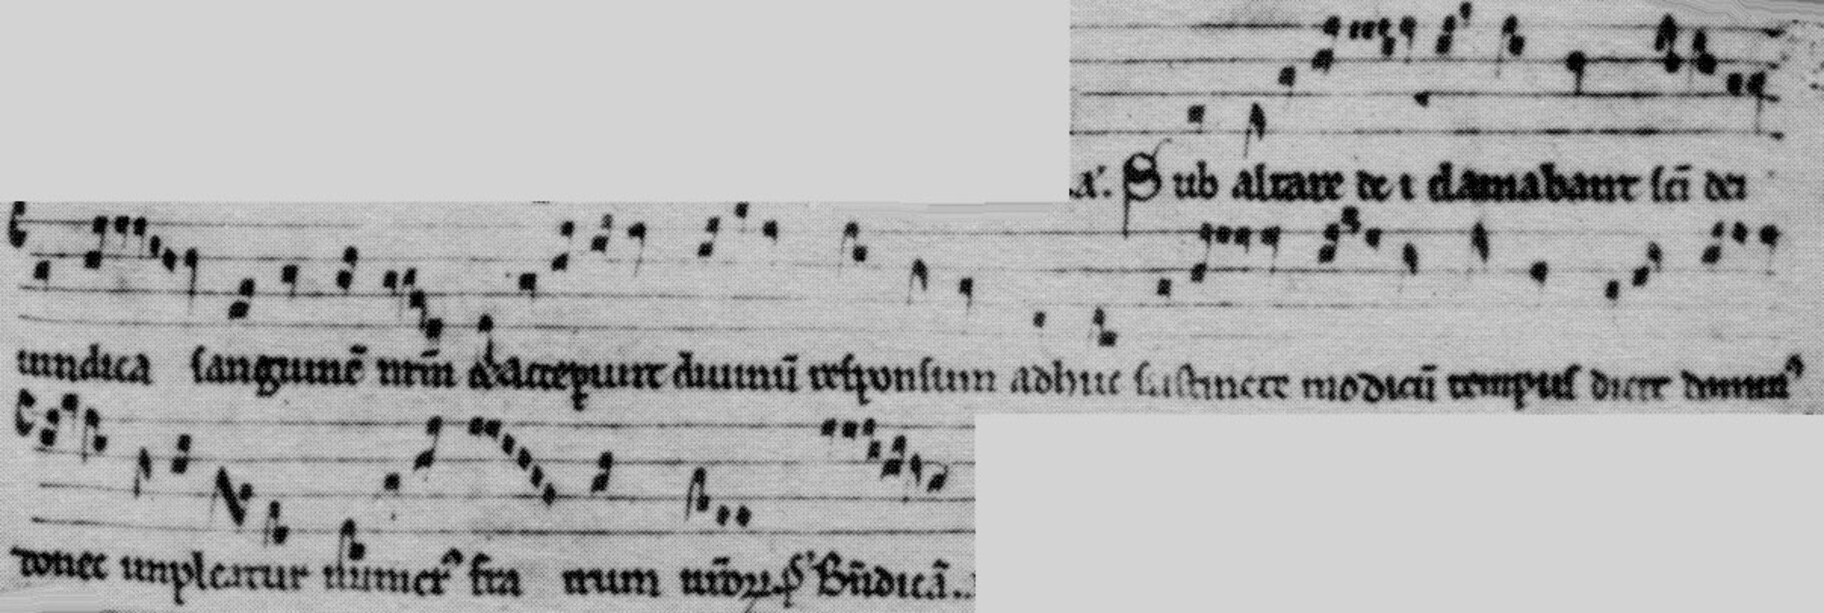 a'. Sub altare dei clamabant sc̄i dei
uindica sanguinē nr̄m & acceperunt diuinū responsum adhuc sustinere modicū tempus dicit dominꝰ
donec impleatur numerꝰ fra trum ur̄oꝝ. p̄s' Bn̄dicā..